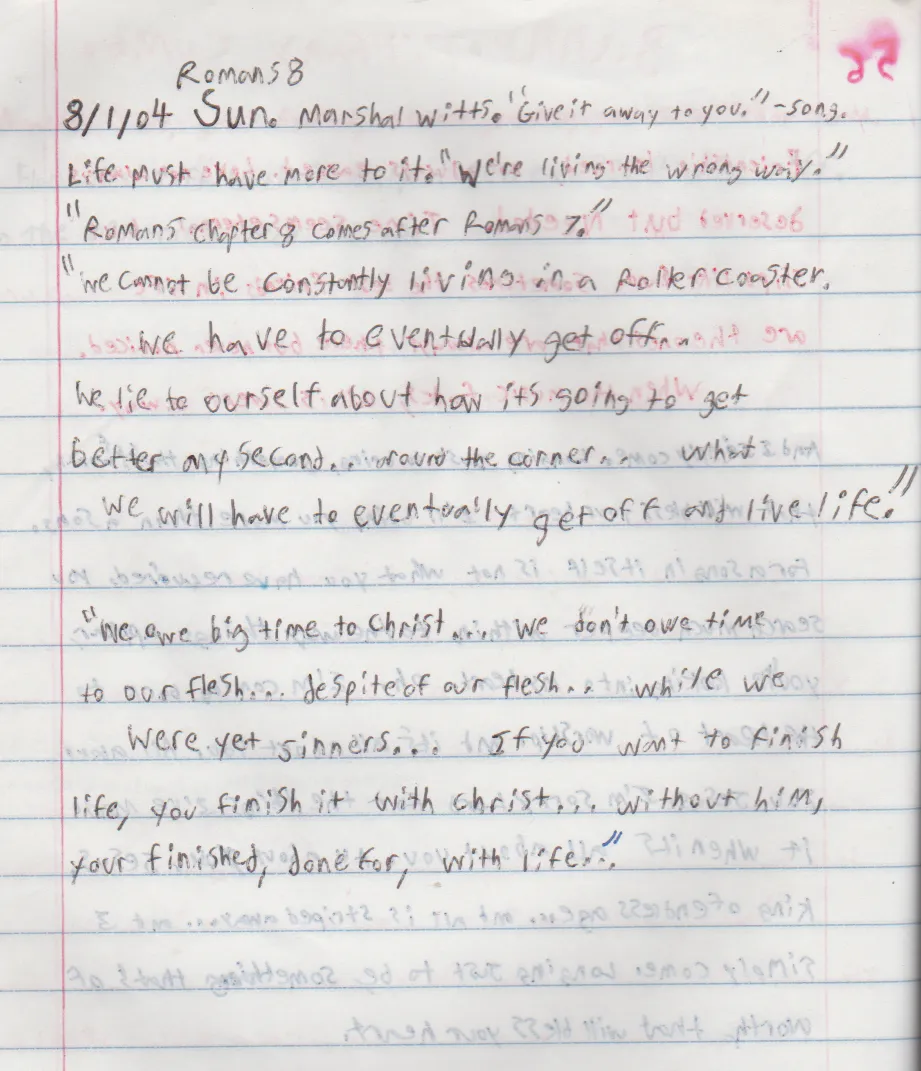 Romans 8
8/1/04 Sun. Marshal witts. "Give it away to you." -song.
Life must have more to it. "We're living the wrong way."
"Romans Chapter 8 comes after Romans 7."
"we cannot be constantly living in a Roller coaster.
we have to eventually get off...
We lie to ourself about how its going to get
better any second... around the corner... what
we will have to eventually get off and live life."
"We owe big time to Christ.... we don't owe time
to our flesh.... despite of our flesh... while we
were yet sinners.... If you want to finish
life, you finish it with christ.... without him,
your finished, done for, with life..."